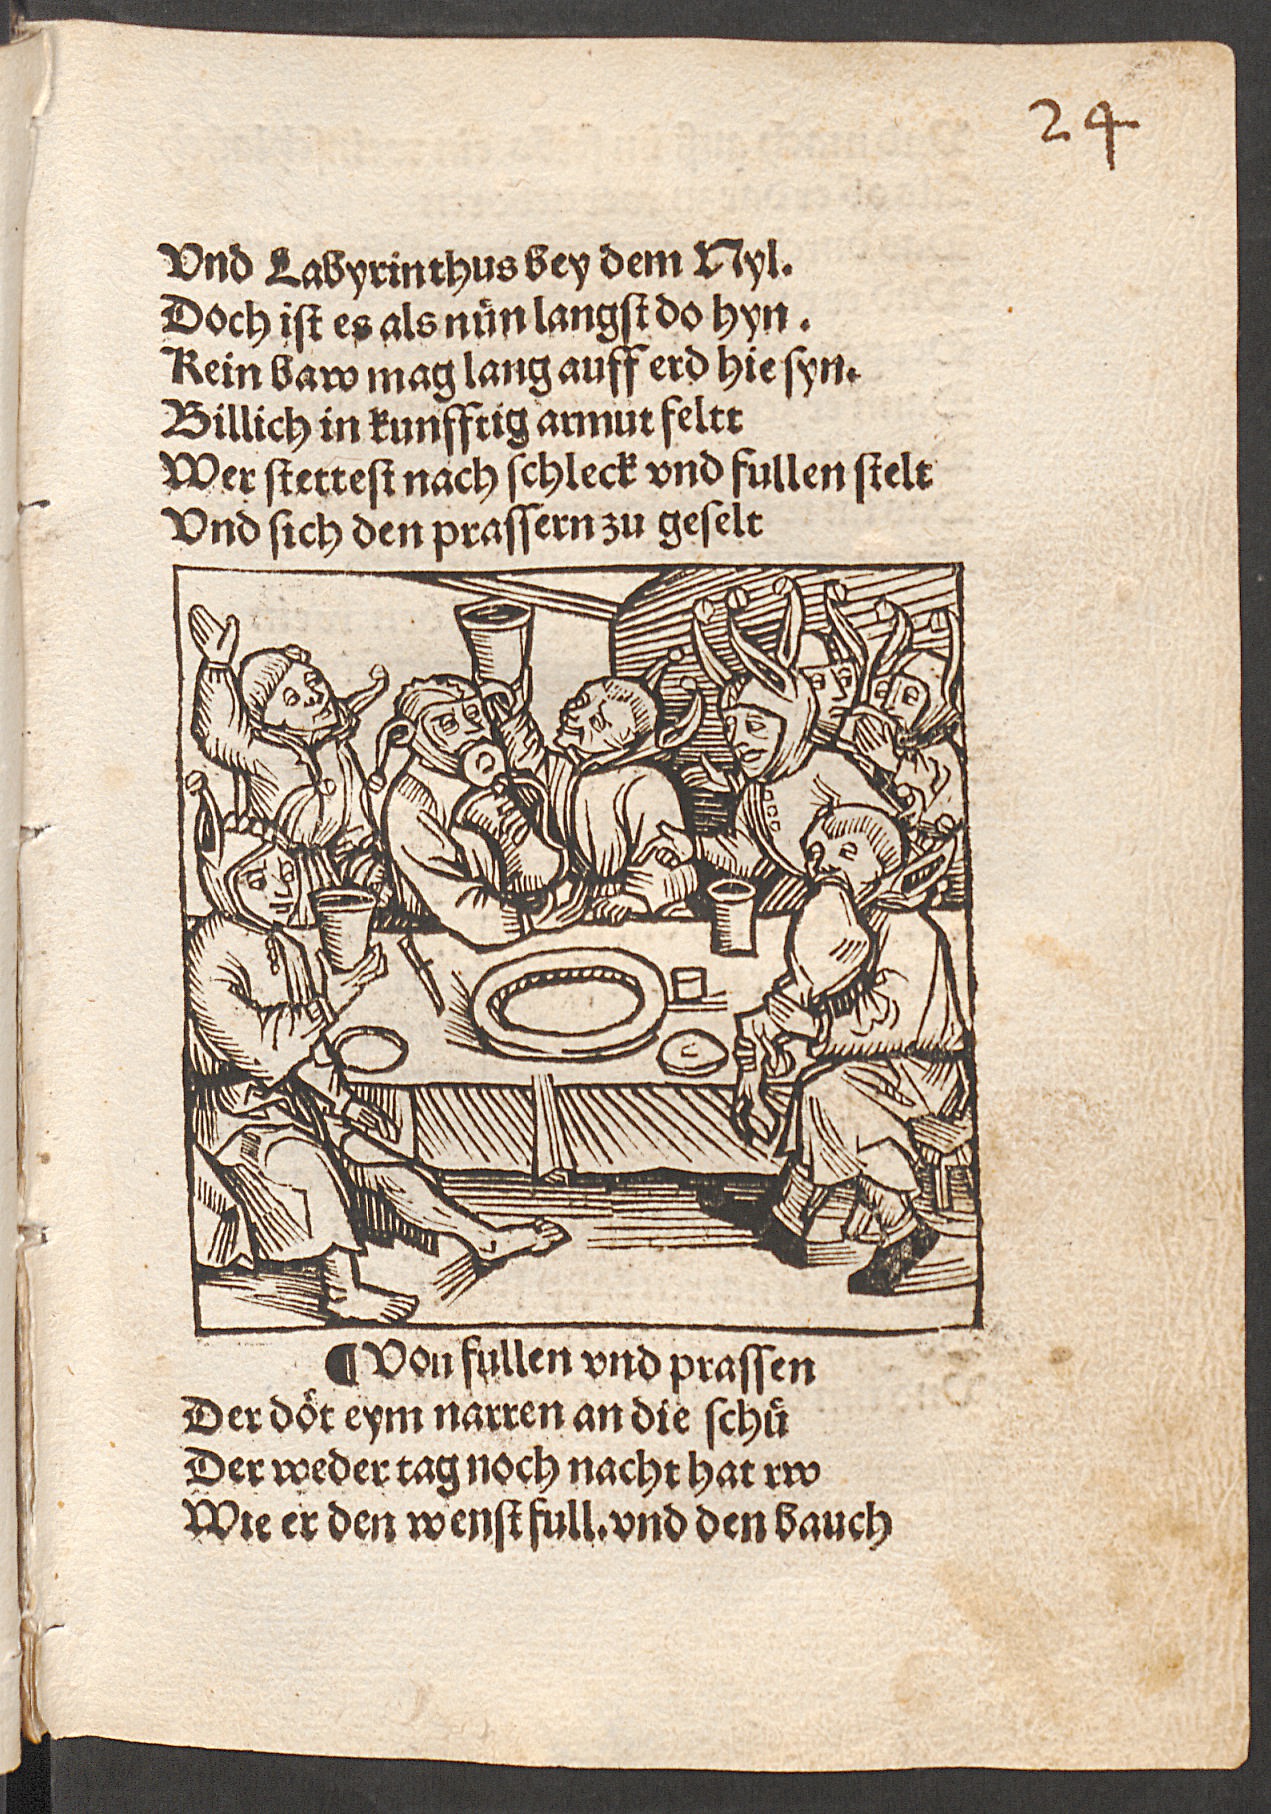 24
Vnd Labyrinthus bey dem Nyl.
Doch ist es als nůn langst do hyn.
Kein baw mag lang auff erd hie syn.
Billich in kunfftig armut feltt
Wer stettest nach schleck vnd fullen stelt
Vnd sich den prassern zu geselt
¶ Von fullen vnd prassen
Der dôt eym narren an die schů
Der weder tag noch nacht hat rw
Wie er den wenst full. vnd den bauch